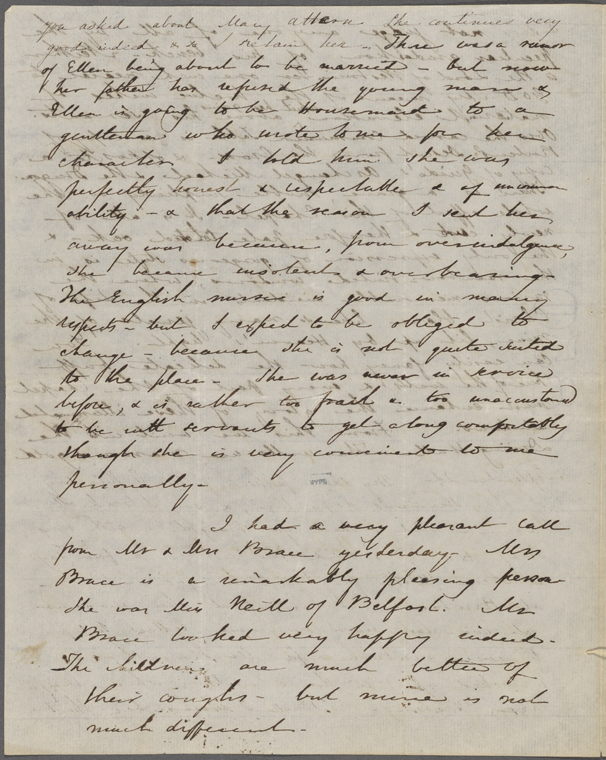 you asked about Mary Ahern She continues very
good indeed & I retain her - There was a rumor
of Ellen being about to be married - but now
her father has refused the young man &
Ellen is going to be Housemaid to a
gentleman who wrote to me for her
character. I told him she was
perfectly honest & respectable & of uncommon
ability - & that the reason I sent her
away was because, from overindulgence,
she became insolent & overbearing -
The English nurse is good in many
respects - but I expect to be obliged to
change - because she is not quite suited
to the place - She was never in service
before, & is rather too frail & too unaccustomed
to be with servants to get along comfortably
though she is very convenient to me
personally -
I had a very pleasant call
from Mr & Mrs Brace yesterday - Mrs
Brace is a remarkably pleasing person
She was Miss Neill of Belfast. Mr
Brace looked very happy indeed -
The children are much better of
their coughs - but mine is not
much different -